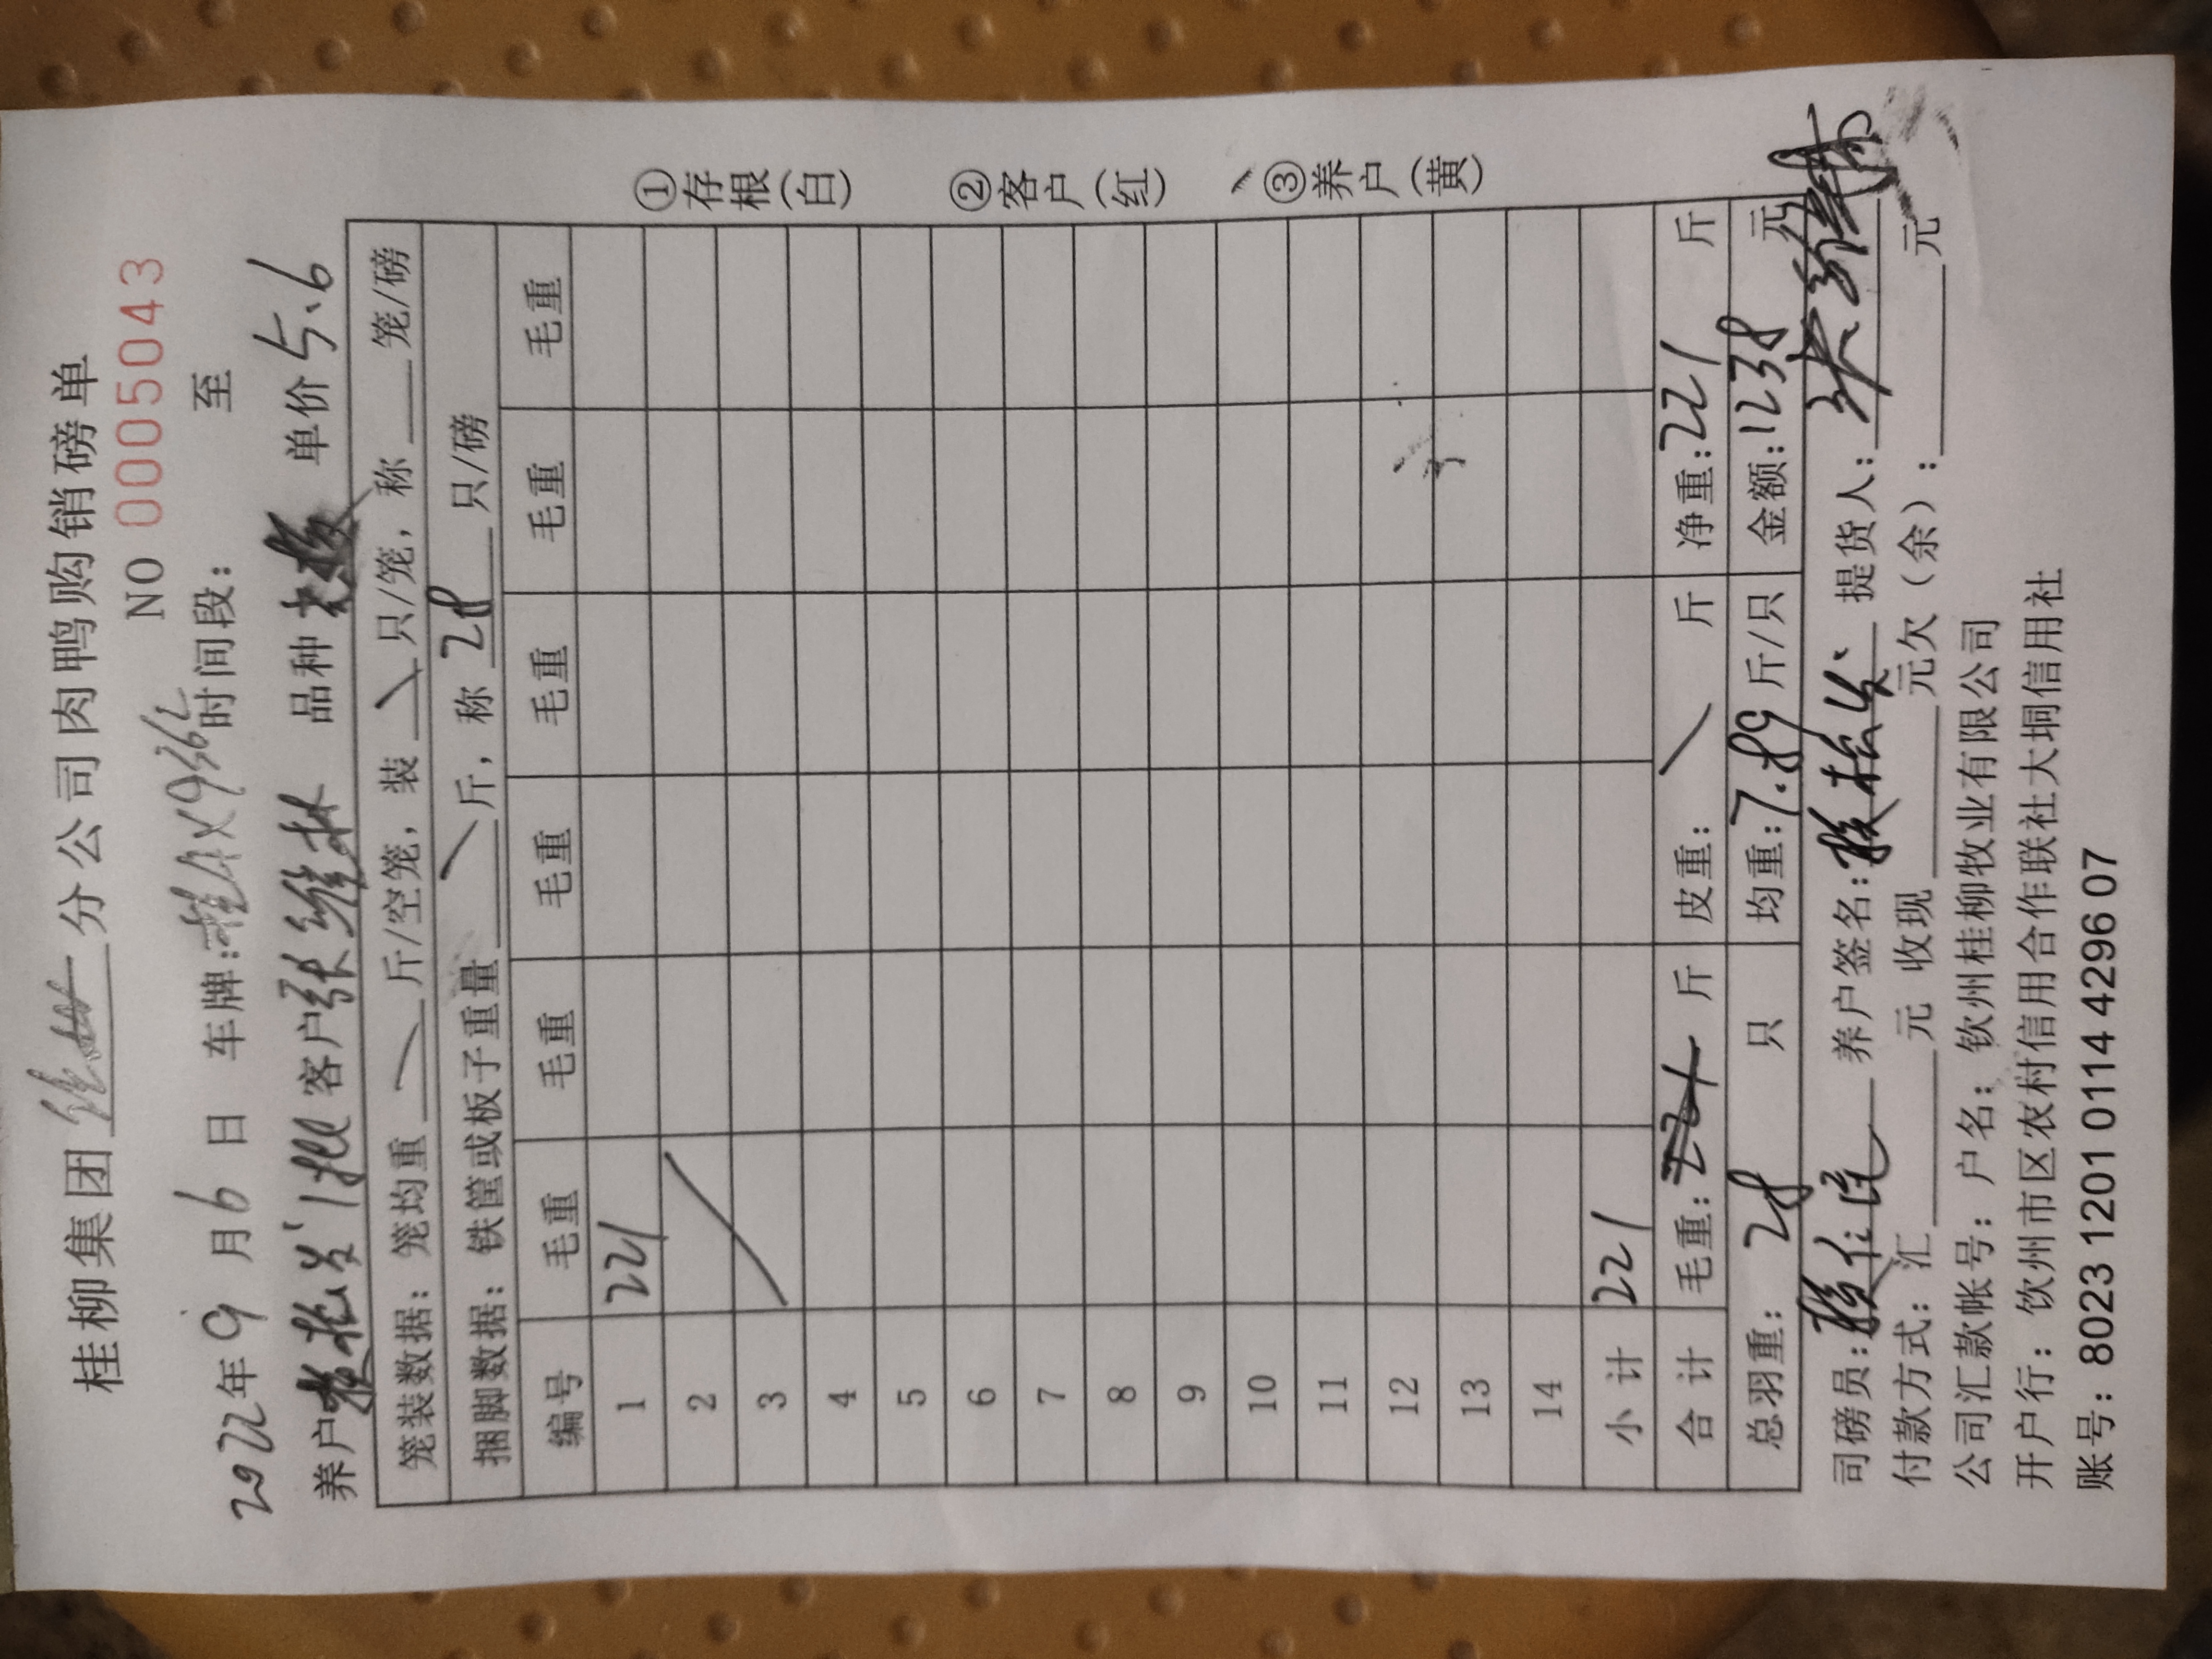 桂柳集团 分公司肉鸭购销磅单
NO 0005043
2022年9月6日 车牌:桂AX9362 时间段: 至
养户 客户张维林 品种 单价5.6
笼装数据: 笼均重 斤/空笼, 装 只/笼, 称 笼/磅
捆脚数据: 铁筐或板子重量 斤, 称 28 只/磅
编号 毛重 毛重 毛重 毛重 毛重 毛重
1 221
2
3
4
5
6
7
8
9
10
11
12
13
14
小计 221
合计 毛重: 斤 皮重: 斤 净重:221 斤
总羽重: 28 只 均重:7.89 斤/只 金额:1238 元
司磅员: 养户签名: 提货人:
付款方式: 汇 元 收现 元欠(余): 元
公司汇款帐号: 户名: 钦州桂柳牧业有限公司
开户行: 钦州市区农村信用合作联社大垌信用社
账号: 8023 1201 0114 4296 07
①存根(白)
②客户(红)
③养户(黄)